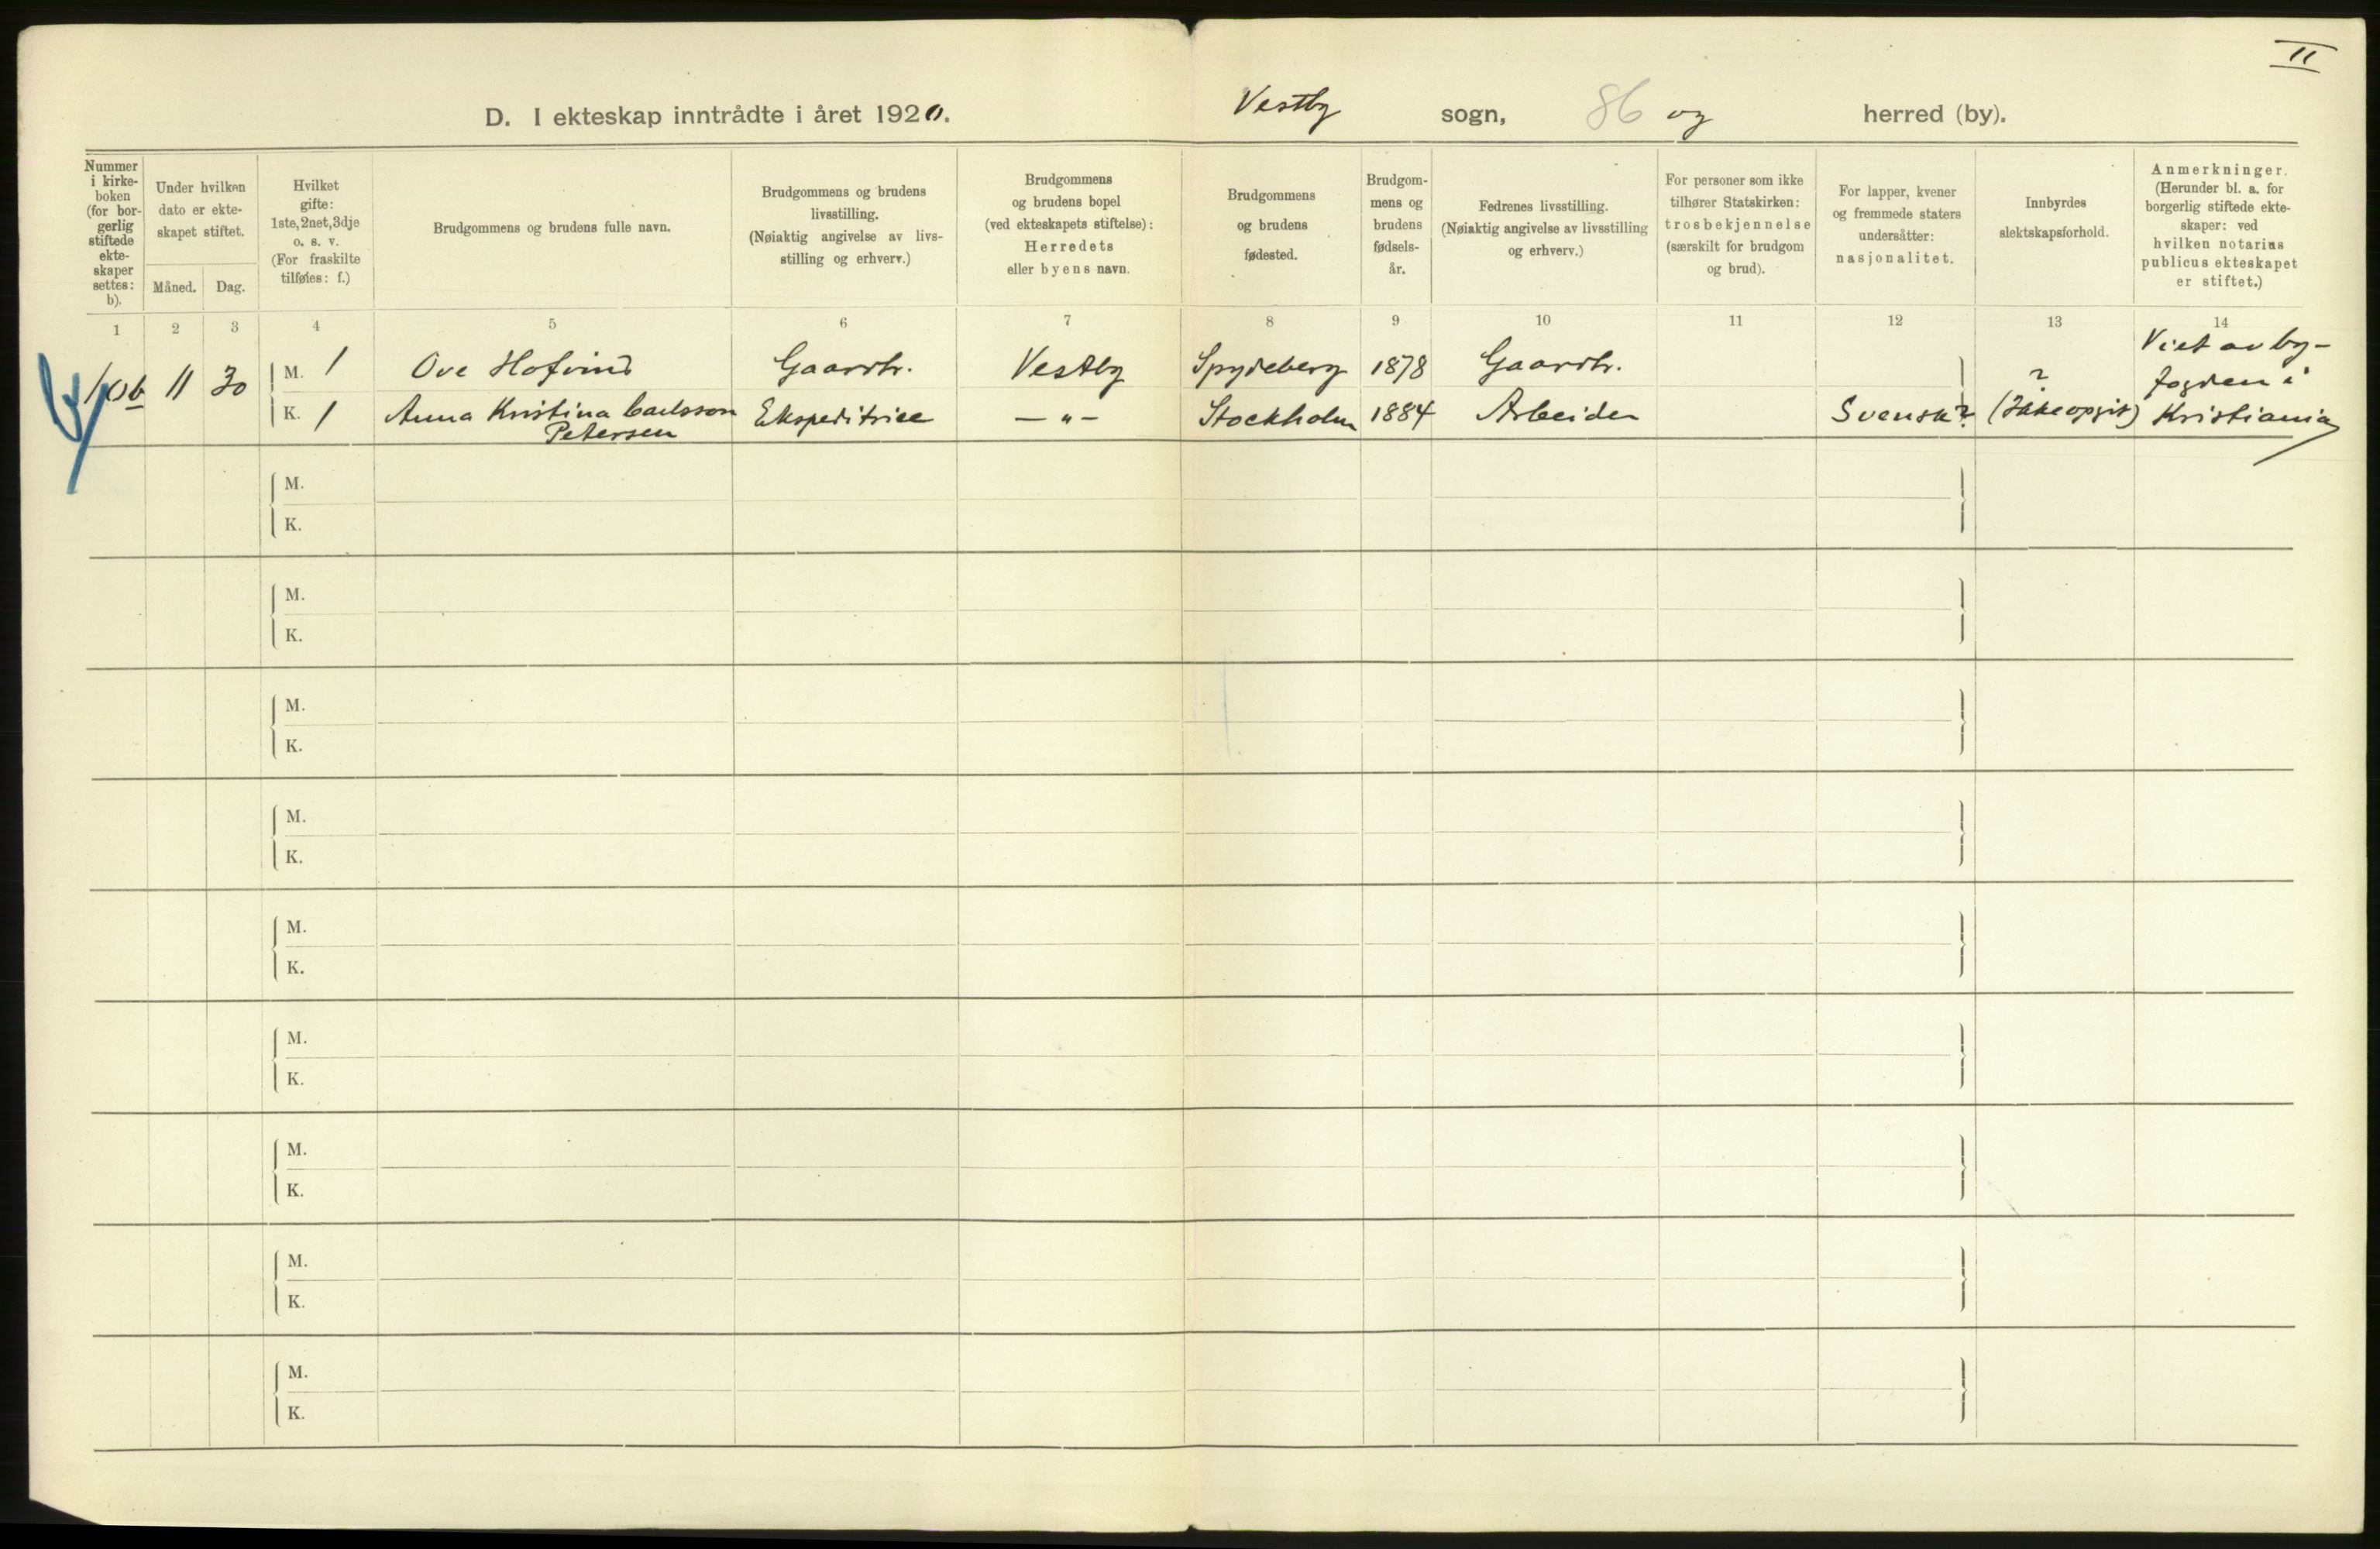 II
D. I ekteskap inntrådte i året 1920.
Vestby sogn, 86 og herred (by).
Nummer i kirke-boken (for bor-gerlig stiftede ekte-skaper settes: b).
Under hvilken dato er ekte-skapet stiftet.
Måned.
Dag.
Hvilket gifte: 1ste, 2net, 3dje o. s. v. (For fraskilte tilføies: f.)
Brudgommens og brudens fulle navn.
Brudgommens og brudens livsstilling. (Nøiaktig angivelse av livs-stilling og erhverv.)
Brudgommens og brudens bopel (ved ekteskapets stiftelse): Herredets eller byens navn.
Brudgommens og brudens fødested.
Brudgom-mens og brudens fødsels-år.
Fedrenes livsstilling. (Nøiaktig angivelse av livsstilling og erhverv.)
For personer som ikke tilhører Statskirken: trosbekjennelse (særskilt for brudgom og brud).
For lapper, kvener og fremmede staters undersåtter: nasjonalitet.
Innbyrdes slektskapsforhold.
Anmerkninger. (Herunder bl. a. for borgerlig stiftede ekte-skaper: ved hvilken notarius publicus ekteskapet er stiftet.)
1 2 3 4 5 6 7 8 9 10 11 12 13 14
10b 11 30
M. 1 Ove Hofvind Gaardbr. Vestby Spydeberg 1878 Gaardbr. ?
K. 1 Anna Kristina Carlsson Petersen Ekspeditrice — " — Stockholm 1884 Arbeider Svensk? (Ikke opgit)
Viet av by-
fogden i
Kristiania
M.
K.
M.
K.
M.
K.
M.
K.
M.
K.
M.
K.
M.
K.
M.
K.
M.
K.